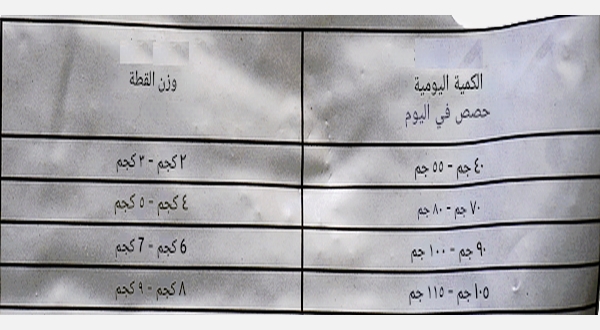 الكمية اليومية
حصص في اليوم
وزن القطة
٤٠ جم - ٥٥ جم
٢ كجم - ٣ كجم
٧٠ جم - ٨٠ جم
٤ كجم - ٥ كجم
٩٠ جم - ١٠٠ جم
6 كجم - 7 كجم
١٠٥ جم - ١١٥ جم
٨ كجم - ٩ كجم